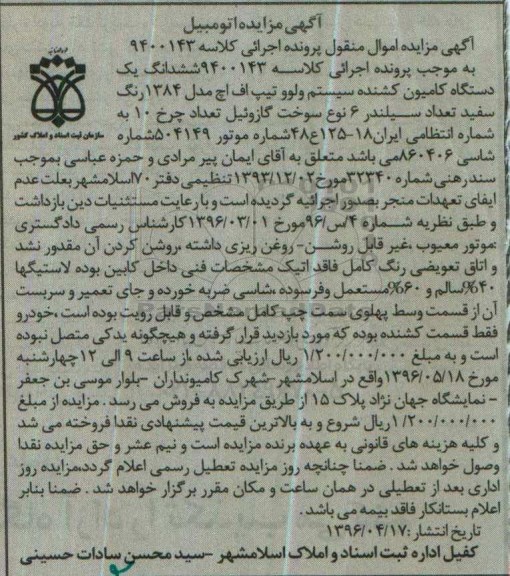 آگهی مزایده اتومبیل
آگهی مزایده اموال منقول پرونده اجرائی کلاسه ۹۴۰۰۱۴۳
به موجب پرونده اجرائی کلاسه ۹۴۰۰۱۴۳ششدانگ یک
دستگاه کامیون کشنده سیستم ولوو تیپ اف اچ مدل ۱۳۸۴رنگ
سفید تعداد سیلندر ۶ نوع سوخت گازوئیل تعداد چرخ ۱۰ به
شماره انتظامی ایران۱۸-۱۲۵ع۴۸شماره موتور ۵۰۴۱۴۹شماره
شاسی ۸۶۰۴۰۶می باشد متعلق به آقای ایمان پیر مرادی و حمزه عباسی بموجب
سند رهنی شماره ۳۲۳۴۰مورخ۱۳۹۳/۱۲/۰۲تنظیمی دفتر ۷۰اسلامشهربعلت عدم
ایفای تعهدات منجر بصدور اجرائیه گردیده است و با رعایت مستثنیات دین بازداشت
و طبق نظریه شماره ۴/س/۹۶مورخ ۱۳۹۶/۰۳/۰۱کارشناس رسمی دادگستری
:موتور معیوب ،غیر قابل روشن- روغن ریزی داشته ،روشن کردن آن مقدور نشد
و اتاق تعویضی رنگ کامل فاقد اتیک مشخصات فنی داخل کابین بوده لاستیگها
۴۰%سالم و ۶۰%مستعمل وفرسوده ،شاسی ضربه خورده و جای تعمیر و سربست
آن از قسمت وسط پهلوی سمت چپ کامل مشخص و قابل رویت بوده است ،خودرو
فقط قسمت کشنده بوده که مورد بازدید قرار گرفته و هیچگونه یدکی متصل نبوده
است و به مبلغ ۱/۲۰۰/۰۰۰/۰۰۰ ریال ارزیابی شده ،از ساعت ۹ الی ۱۲چهارشنبه
مورخ ۱۳۹۶/۰۵/۱۸واقع در اسلامشهر-شهرک کامیونداران -بلوار موسی بن جعفر
- نمایشگاه جهان نژاد پلاک ۱۵ از طریق مزایده به فروش می رسد . مزایده از مبلغ
۱/۲۰۰/۰۰۰/۰۰۰ریال شروع و به بالاترین قیمت پیشنهادی نقدا فروخته می شد
و کلیه هزینه های قانونی به عهده برنده مزایده است و نیم عشر و حق مزایده نقدا
وصول خواهد شد . ضمنا چنانچه روز مزایده تعطیل رسمی اعلام گردد،مزایده روز
اداری بعد از تعطیلی در همان ساعت و مکان مقرر برگزار خواهد شد . ضمنا بنابر
اعلام بستانکار فاقد بیمه می باشد .
تاریخ انتشار :۱۳۹۶/۰۴/۱۷
کفیل اداره ثبت اسناد و املاک اسلامشهر -سید محسن سادات حسینی
سازمان ثبت اسناد و املاک کشور